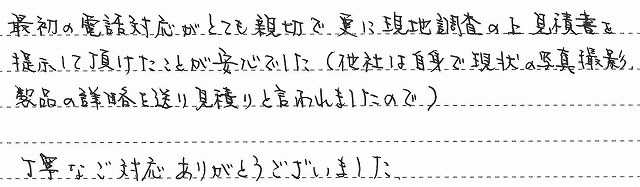 最初の電話対応がとても親切で更に現地調査の上見積書を
提示して頂けたことが安心でした（他社は自身で現状の写真撮影、
製品の詳略を送り見積りと言われましたので）
丁寧なご対応ありがとうございました。